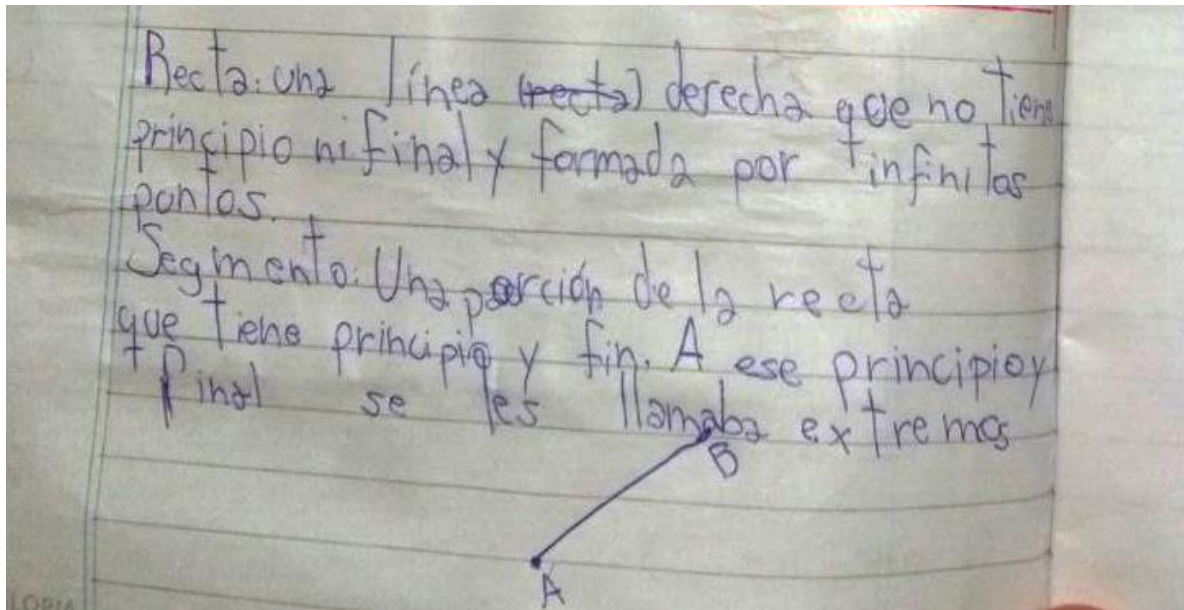 Recta: una línea (recta) derecha que no tiene
principio ni final y formada por infinitos
pontos.
Segmento: Una porción de la recta
que tiene principio y fin. A ese principio y
final se les llamaba extremos
B
A